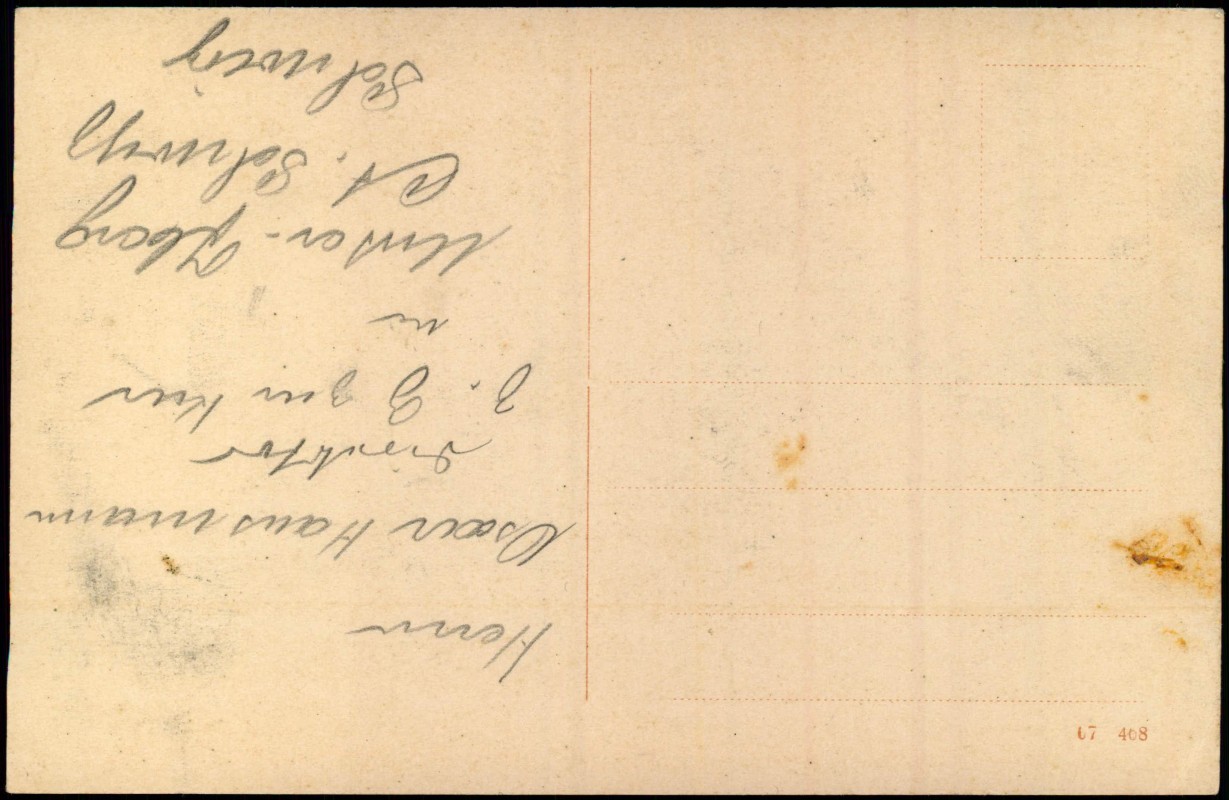 Herrn
Oscar Hausmann
Direktor
z. Z zur Kur
in
Unter-Iberg
Ct. Schwyz
Schweiz
07 408